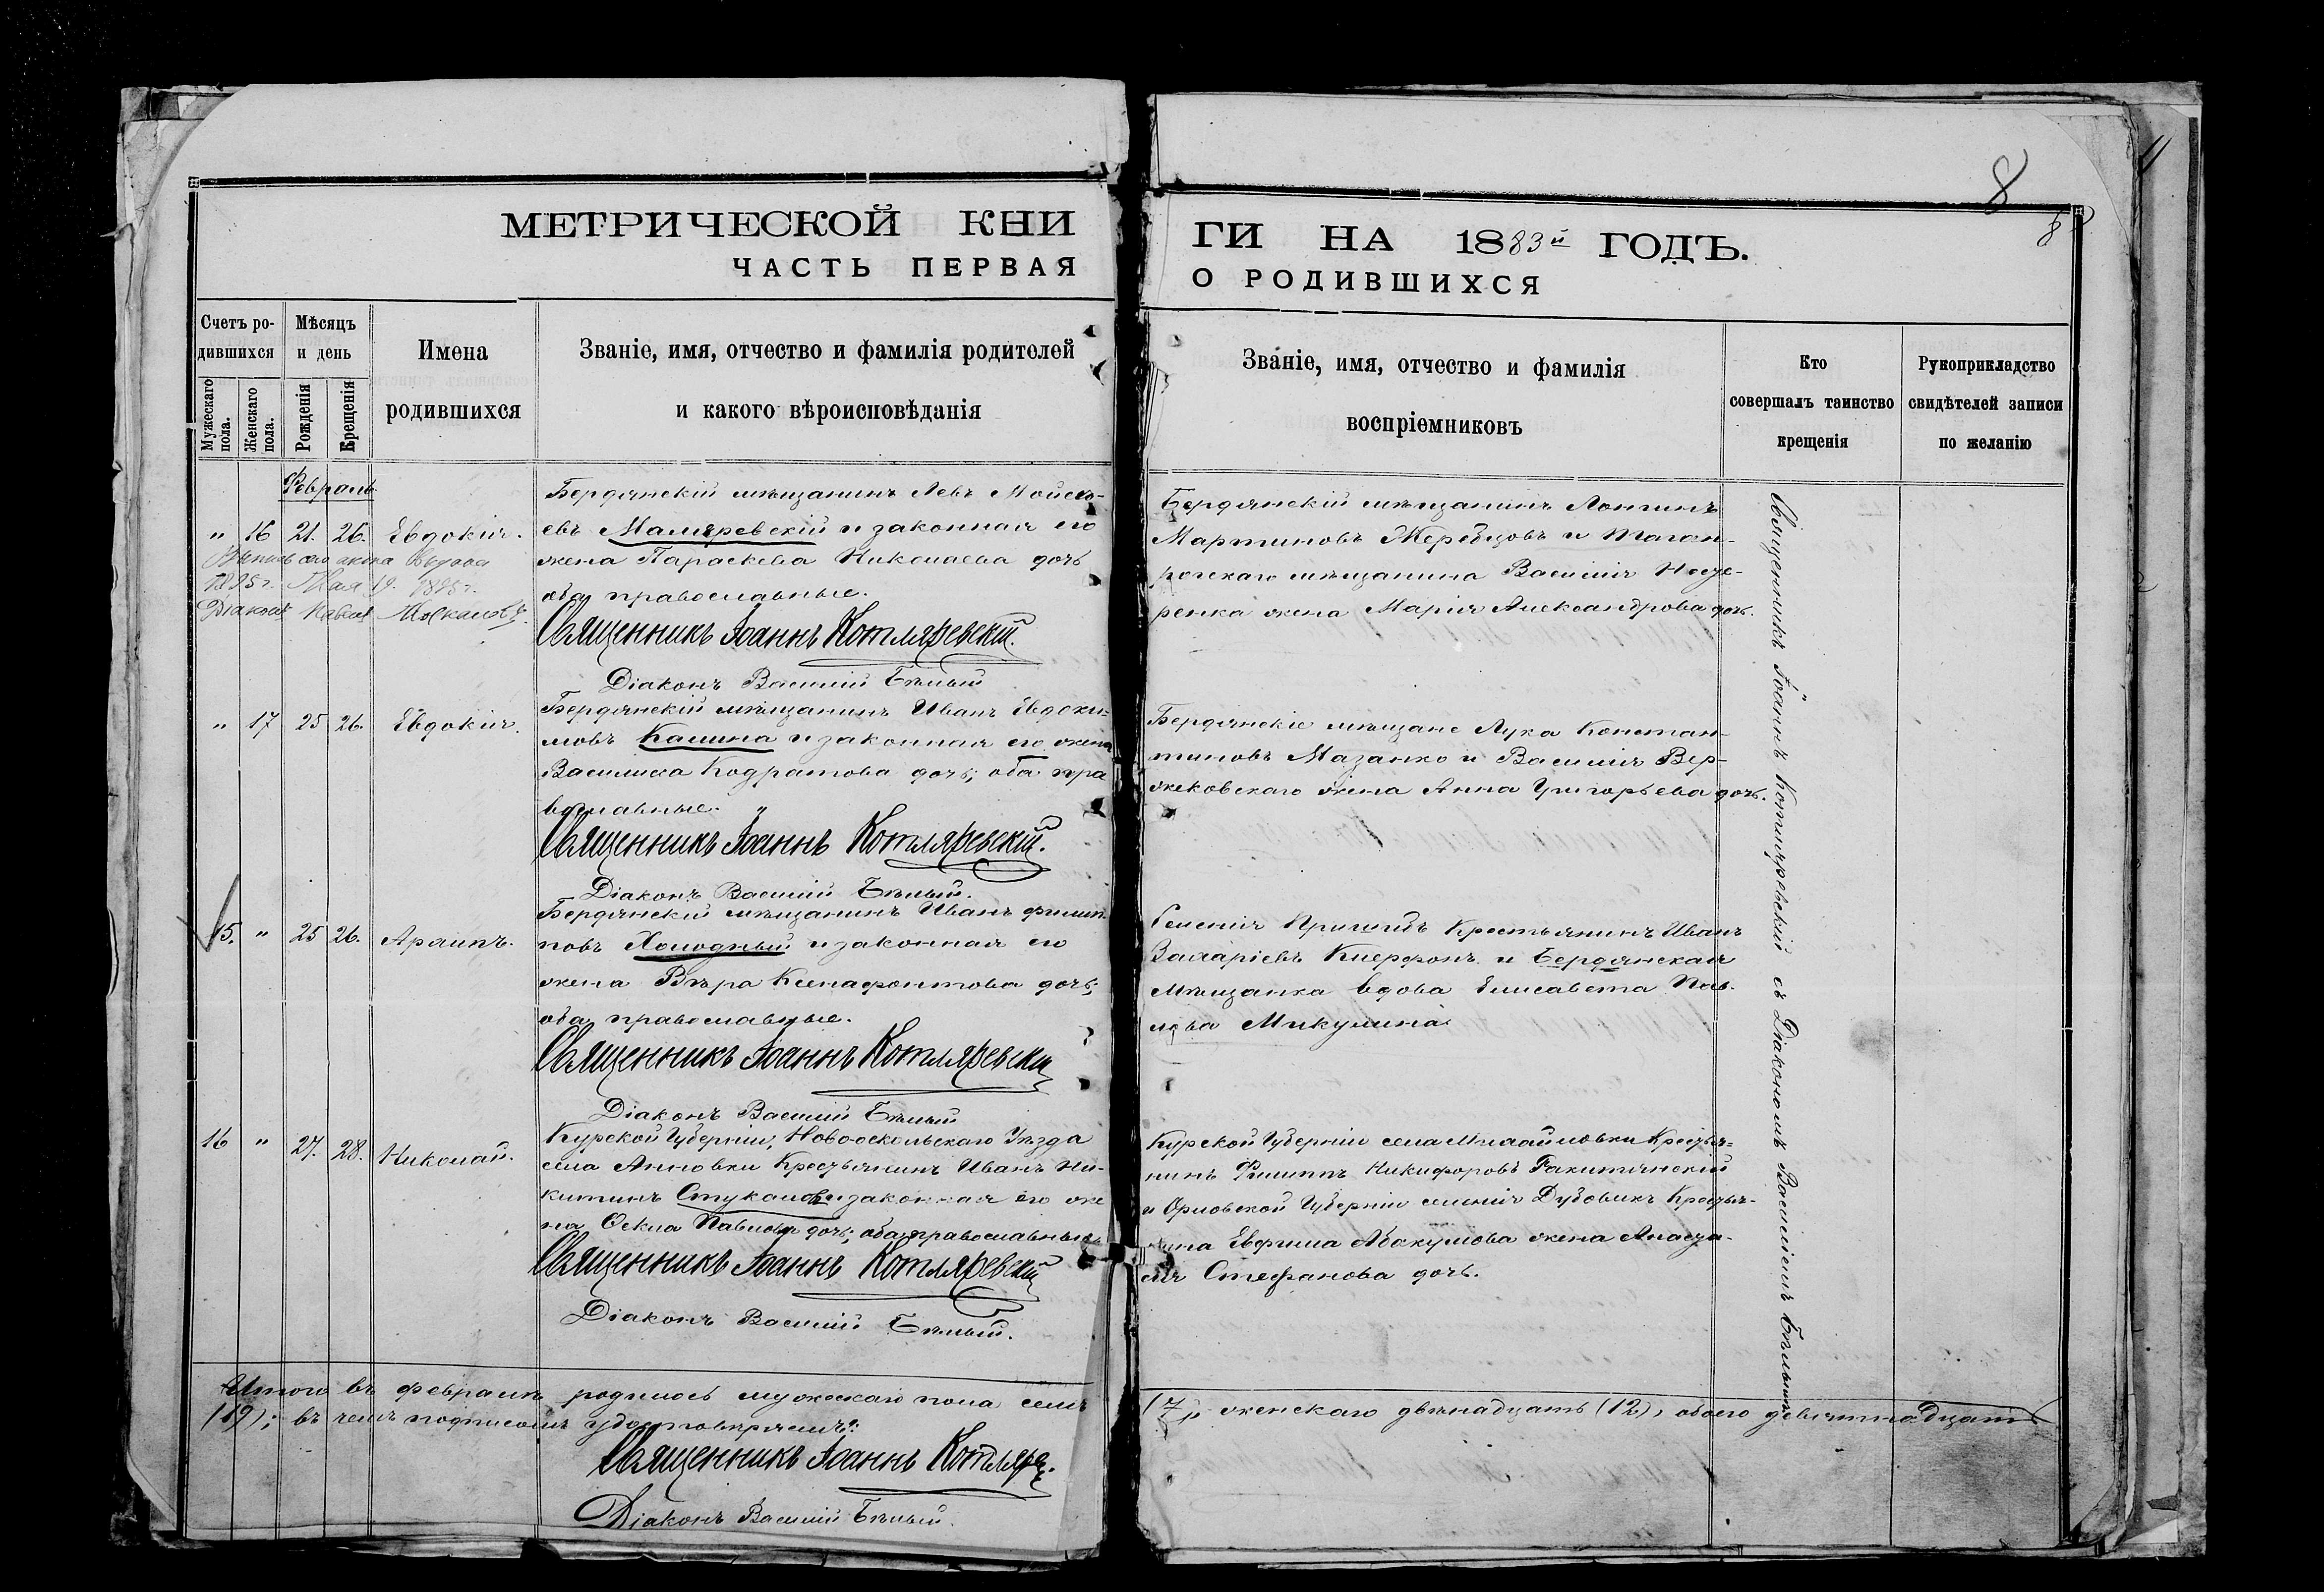 8
8
МЕТРИЧЕСКОЙ КНИ
ГИ НА 1883й ГОДЪ.
ЧАСТЬ ПЕРВАЯ
О РОДИВШИХСЯ
Счетъ ро-
дившихся
Мужескаго пола.
Женскаго пола.
Мѣсяцъ
и день
Рожденія
Крещенія
Имена
родившихся
Званіе, имя, отчество и фамилія родителей
и какого вѣроисповѣданія
Званіе, имя, отчество и фамилія
воспріемниковъ
Кто
совершалъ таинство
крещенія
Рукоприкладство
свидѣтелей записи
по желанію
Февраль
" 16 21. 26. Евдокія.
Выпись сего акта выдана
1895 г. Мая 19. 1895 г.
Діаконъ Павел
Бердянскій мѣщанинъ Левъ Мойсе-
евъ Маляревскій и законная его
жена Параскева Николаева дочь
оба православные.
Священникъ Іоаннъ Котляревскій.
Діаконъ Василій Бѣлый
Бердянскій мѣщанинъ Лонгинъ
Мартиновъ Жеребцовъ и Таган-
рогскаго мѣщанина Василія Несте-
ренка жена Марія Александрова дочь.
" 17 25 26. Евдокія.
Бердянскій мѣщанинъ Иванъ Евдоки-
мовъ Калина и законная его жена
Василиса Кодратова дочь; оба пра
вославные.
Священникъ Іоаннъ Котляревскій.
Діаконъ Василій Бѣлый.
Бердянскіе мѣщане Лука Констан-
тиновъ Мазанко и Василія Вер-
жековскаго жена Анна Григорьева дочь.
15. " 25 26. Архипъ.
Бердянскій мѣщанинъ Иванъ Филип
повъ Холодный и законная его
жена Вѣра Ксенафонтова дочь;
оба православные.
Священникъ Іоаннъ Котляревскій
Діаконъ Василій Бѣлый
Селенія Пришибъ Крестьянинъ Иванъ
Захаріевъ и Бердянская
Мѣщанка вдова Елисавета Пав-
лова Микулина
16 " 27. 28. Николай.
Курской Губерніи, Новооскольскаго Уѣзда
села Анновки Крестьянинъ Иванъ Ни-
китинъ Стукаловъ и законная его же
на Ѳекла Павлова дочь; оба православные
Священникъ Іоаннъ Котляревскій
Діаконъ Василій Бѣлый.
Курской Губерніи села Михайловки Крестья=
нинъ Филиппъ Никифоровъ Ракитянскій
и Орловской Губерніи селенія Дубовикъ Крестья-
нина Евфима Абакумова жена Анаста-
сія Стефанова дочь.
Священникъ Іоаннъ Котляревскій съ Діакономъ Василіемъ Бѣлымъ
Итого въ февралѣ родилось мужескаго пола семь
(7), женскаго двѣнадцать (12), обоего девятнадцать
(19); въ чемъ подписомъ удостовѣряемъ:
Священникъ Іоаннъ Котляре.
Діаконъ Василій Бѣлый.